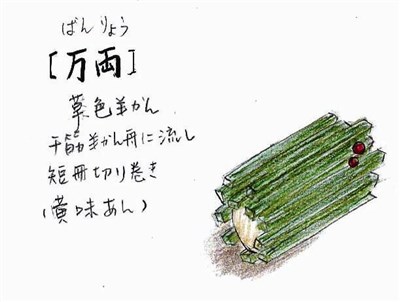 ばんりょう
[万両]
葉色羊かん
千筋羊かん舟に流し
短冊切り巻き
(黄味あん)